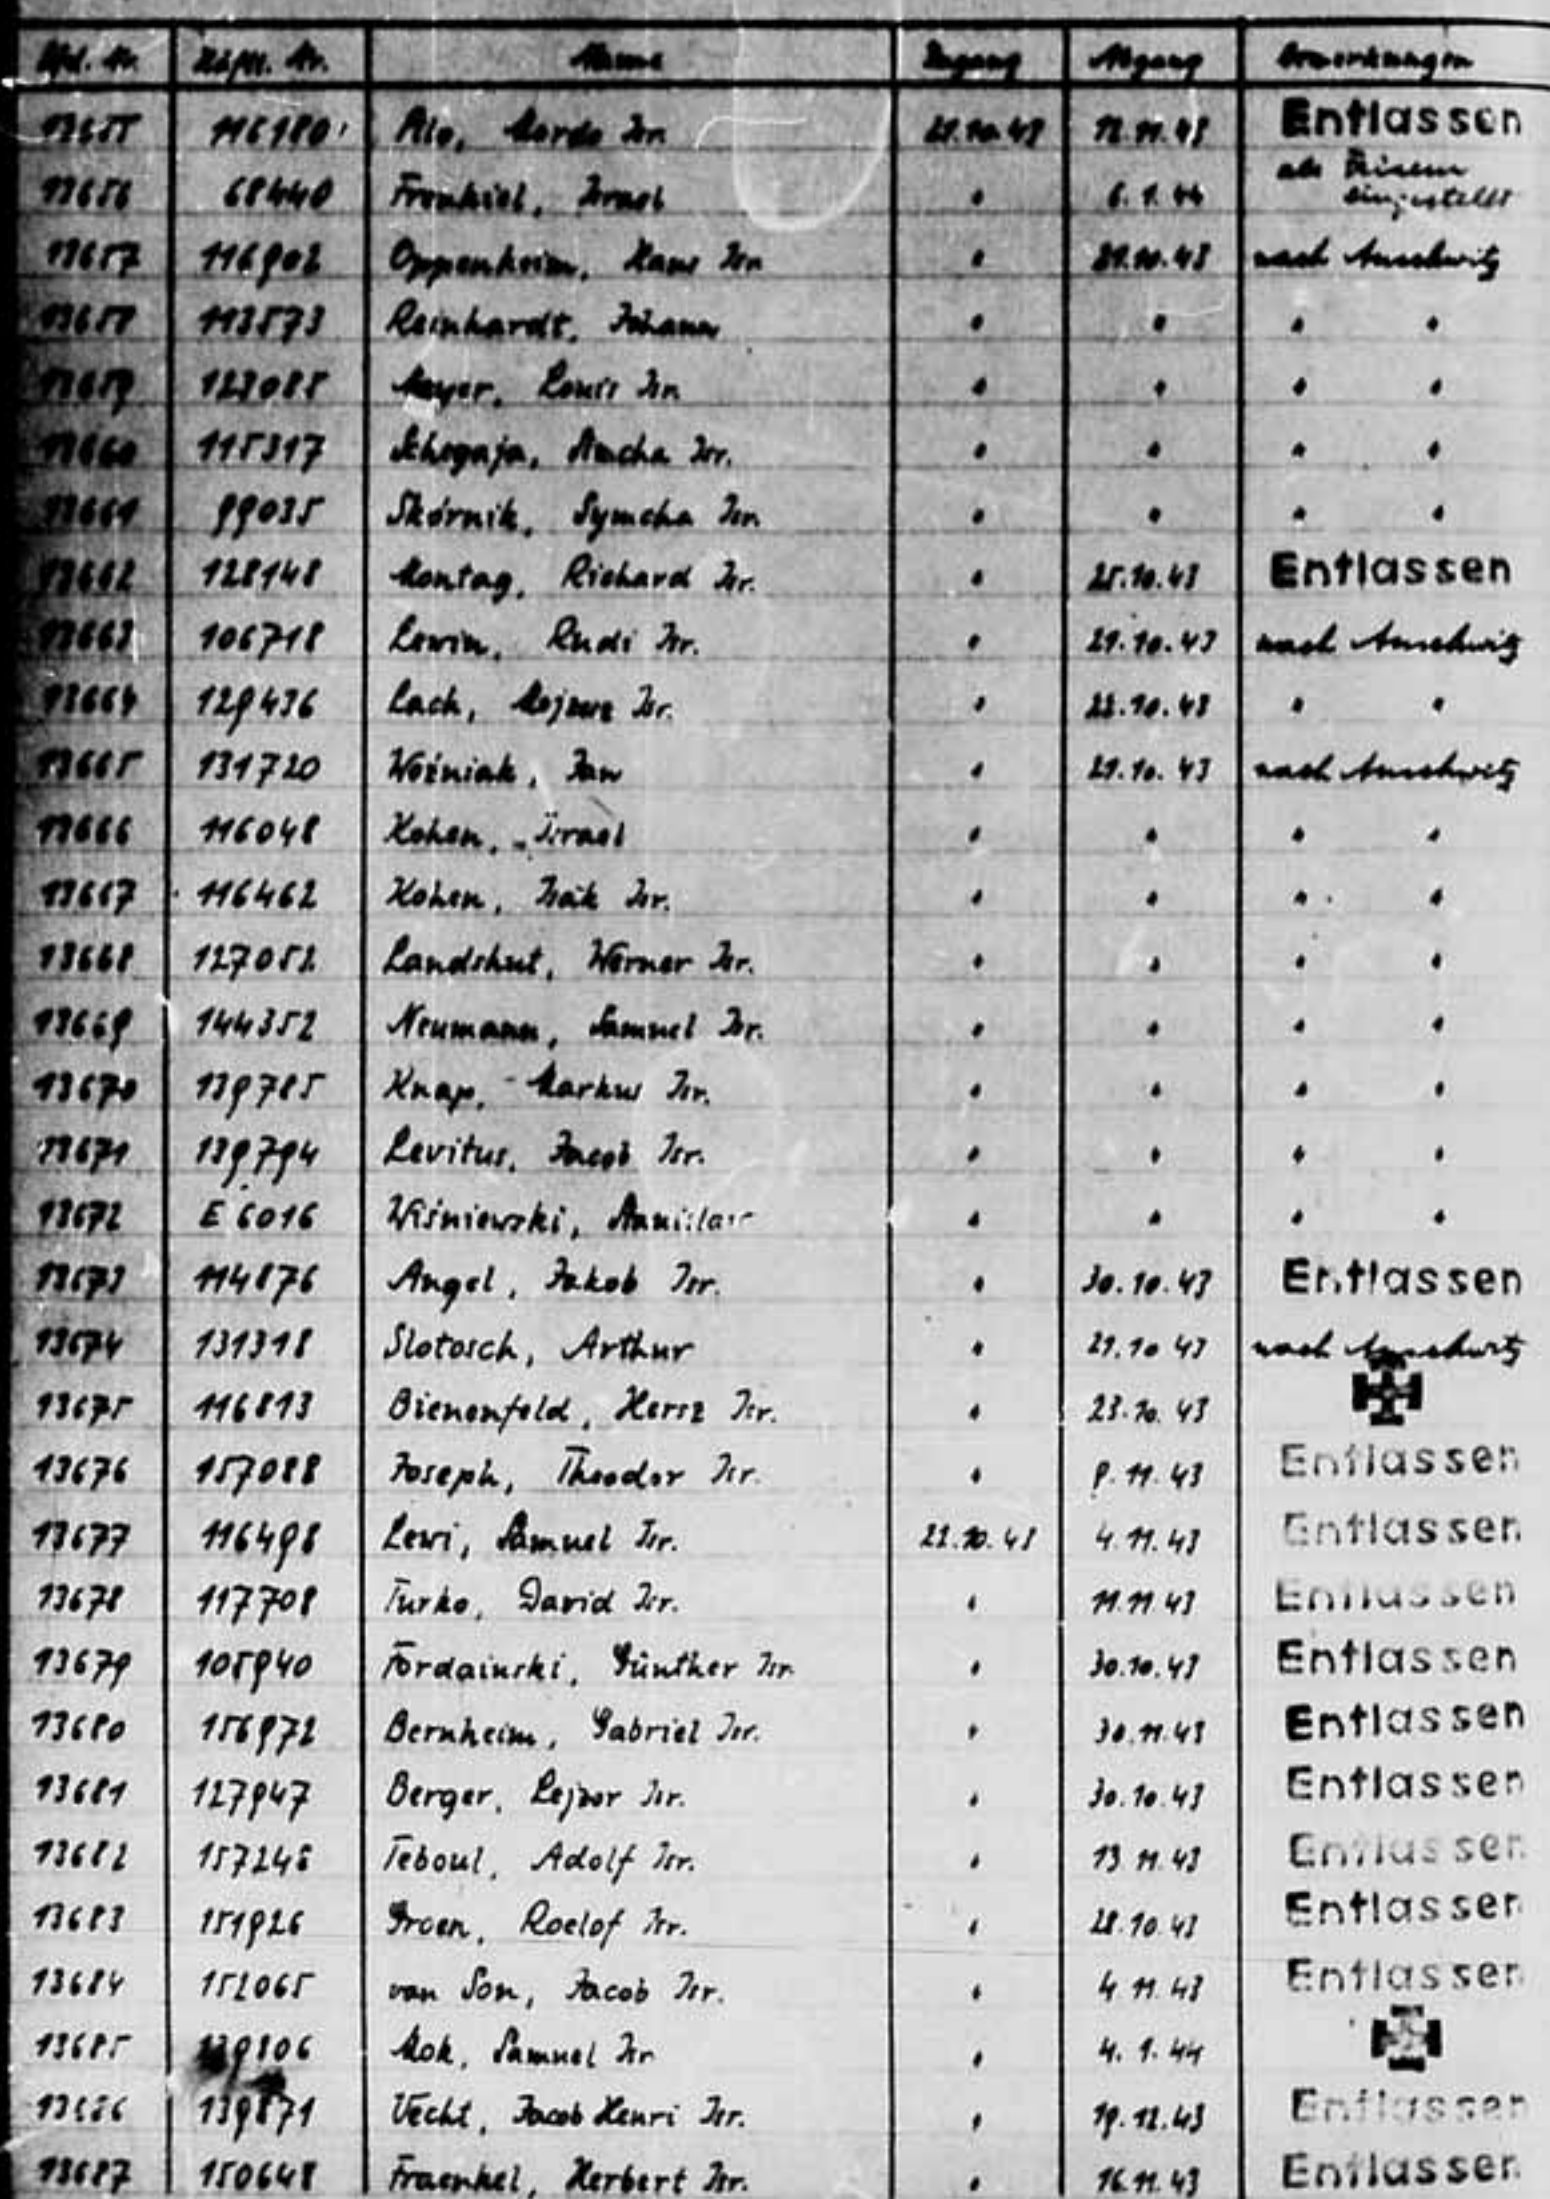 Lfd. Nr. Häftl. Nr. Name Zugang Abgang Bemerkungen
13655 116180 Alo, Mordo Isr. 21.10.43 12.11.43 Entlassen
13656 68440 Frenkiel, Israel " 6.1.44 als
eingestellt
13657 116902 Oppenheim, Hans Isr. " 21.10.43 nach Auschwitz
13658 113573 Reinhardt, Johann " " " "
13659 123088 Meyer, Louis Isr. " " " "
13660 115317 Amcha Isr. " " " "
13661 99035 Skórnik, Symcha Isr. " " " "
13662 128148 Montag, Richard Isr. " 25.10.43 Entlassen
13663 106718 Lewin, Rudi Isr. " 21.10.43 nach Auschwitz
13664 129436 Lach, Isr. " 22.10.43 " "
13665 131720 Woźniak, Jan " 21.10.43 nach Auschwitz
13666 116048 Kohen, Israel " " " "
13667 116462 Kohen, Isak Isr. " " " "
13668 127052 Landshut, Werner Isr. " " " "
13669 144352 Neumann, Samuel Isr. " " " "
13670 139785 Knap, Markus Isr. " " " "
13671 139794 Levitus, Jacob Isr. " " " "
13672 E 6016 Wiśniewski, Stanislaw " " " "
13673 114876 Angel, Jakob Isr. " 30.10.43 Entlassen
13674 131318 Slotosch, Arthur " 21.10.43 nach Auschwitz
13675 116813 Bienenfeld, Hersz Isr. " 23.10.43
13676 157088 Joseph, Theodor Isr. " 9.11.43 Entlassen
13677 116498 Lewi, Samuel Isr. 22.10.43 4.11.43 Entlassen
13678 117708 Turko, David Isr. " 11.11.43 Entlassen
13679 105940 Fordainski, Günther Isr. " 30.10.43 Entlassen
13680 156972 Bernheim, Gabriel Isr. " 30.11.43 Entlassen
13681 127947 Berger, Lejzor Isr. " 30.10.43 Entlassen
13682 157248 Teboul, Adolf Isr. " 13.11.43 Entlassen
13683 151926 Groen, Roelof Isr. " 28.10.43 Entlassen
13684 152065 van Son, Jacob Isr. " 4.11.43 Entlassen
13685 139806 Mok, Samuel Isr " 4.1.44
13686 139871 Vecht, Jacob Henri Isr. " 19.12.43 Entlassen
13687 150648 Fraenkel, Herbert Isr. " 16.11.43 Entlassen